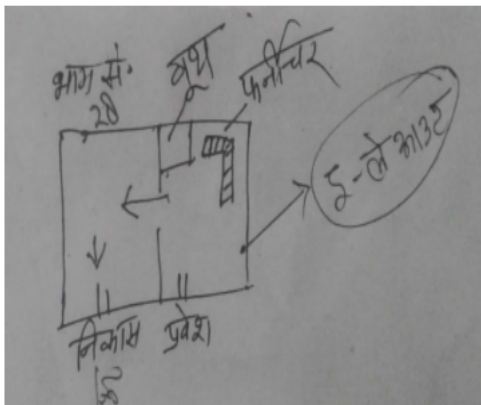 भाग सं.
28
बूथ
फर्नीचर
इ-ले आउट
निकास
प्रवेश